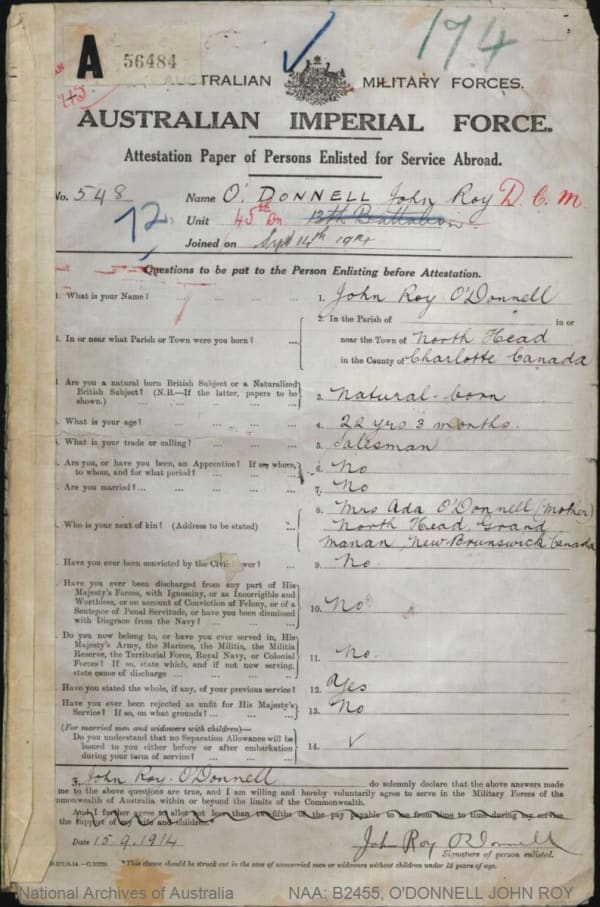 A 56484
174
AUSTRALIAN MILITARY FORCES.
AUSTRALIAN IMPERIAL FORCE.
Attestation Paper of Persons Enlisted for Service Abroad.
No. 548 Name O'DONNELL John Roy D.C.M.
12 Unit 45th Bn 13th Battalion
Joined on Sept 14th 1914
Questions to be put to the Person Enlisting before Attestation.
1. What is your Name? ... ... ... ... 1. John Roy O'Donnell
2. In the Parish of in or
2. In or near what Parish or Town were you born? ... near the Town of North Head
in the County of Charlotte Canada
3. Are you a natural born British Subject or a Naturalized
British Subject? (N.B.—If the latter, papers to be
shown.) ... ... ... ... 3. Natural-born
4. What is your age? ... ... ... ... 4. 22 yrs 3 months.
5. What is your trade or calling? ... ... ... 5. Salesman
6. Are you, or have you been, an Apprentice? If so where,
to whom, and for what period? ... ... ... 6. No
7. Are you married? ... ... ... ... 7. No
8. Mrs Ada O'Donnell (Mother)
8. Who is your next of kin? (Address to be stated) ... North Head, Grand
Manan, New Brunswick Canada
9. Have you ever been convicted by the Civil Power? ... 9. No.
10. Have you ever been discharged from any part of His
Majesty's Forces, with Ignominy, or as Incorrigible and
Worthless, or on account of Conviction of Felony, or of a
Sentence of Penal Servitude, or have you been dismissed
with Disgrace from the Navy? ... ... ... 10. No.
11. Do you now belong to, or have you ever served in, His
Majesty's Army, the Marines, the Militia, the Militia
Reserve, the Territorial Force, Royal Navy, or Colonial
Forces? If so, state which, and if not now serving,
state cause of discharge ... ... ... 11. No.
12. Have you stated the whole, if any, of your previous service? 12. Yes
13. Have you ever been rejected as unfit for His Majesty's
Service? If so, on what grounds? ... ... ... 13. No
(For married men and widowers with children)—
14. Do you understand that no Separation Allowance will be
issued to you either before or after embarkation
during your term of service? ... ... ... 14. ✓
I, John Roy O'Donnell do solemnly declare that the above answers made
me to the above questions are true, and I am willing and hereby voluntarily agree to serve in the Military Forces of the
mmonwealth of Australia within or beyond the limits of the Commonwealth.
And I further agree to allot not less than two-fifths of the pay payable to me from time to time during my service
the support of my wife and children.*
Date 15.9.1914 John Roy O'Donnell
Signature of person enlisted.
*This clause should be struck out in the case of unmarried men or widowers without children under 18 years of age.
National Archives of Australia NAA: B2455, O'DONNELL JOHN ROY